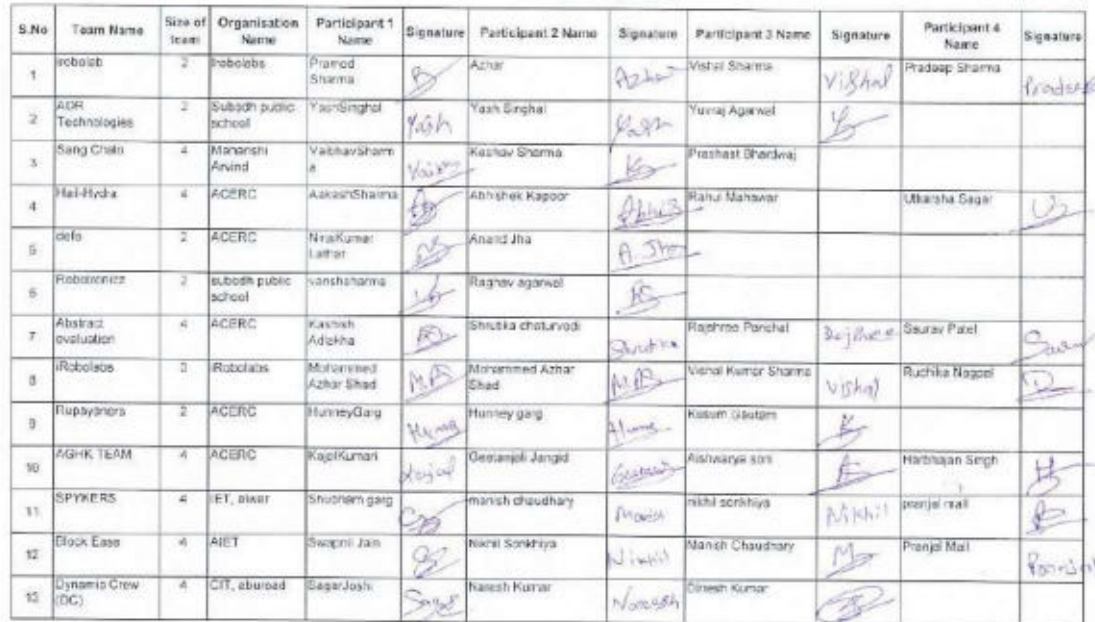 S.No Team Name Size of team Organisation Name Participant 1 Name Signature Participant 2 Name Signature Participant 3 Name Signature Participant 4 Name Signature
1 irobolab 2 Irobolabs Pramod Sharma Azhar Azhar Vishal Sharma Vishal Pradeep Sharma Pradeep
2 ADR Technologies 2 Subodh public school YashSinghal Yash Yash Singhal Yash Yuvraj Agarwal
3 4 Maharishi Arvind VaibhavSharma Keshav Sharma Prashast Bhardwaj
4 Hail-Hydra 4 ACERC AakashSharma Abhishek Kapoor Rahul Mahawar Utkarsha Sagar
5 defo 2 ACERC Anand Jha A. Jha
6 2 subodh public school vanshsharma Raghav agarwal
7 Abstract evaluation 4 ACERC Kashish Adlakha Shrutika chaturvedi Shrutika Rajshree Panchal Rajshree Saurav Patel
8 iRobolabs iRobolabs Mohammed Azhar Shad Mohammed Azhar Shad Vishal Kumar Sharma Vishal Ruchika Nagpal
9 2 ACERC HunneyGarg Hunney garg Kusum Gautam
10 AGHK TEAM 4 ACERC KajolKumari Geetanjali Jangid Aishwarya soni Harbhajan Singh
11 SPYKERS 4 IET, alwar Shubham garg manish chaudhary Manish nikhil sonkhiya Nikhil pranjal mall
12 Block Ease 4 AIET Swapnil Jain Nikhil Sonkhiya Nikhil Manish Chaudhary Pranjal Mall
13 Dynamic Crew (DC) 4 CIT, aburoad SagarJoshi Sagar Naresh Kumar Dinesh Kumar